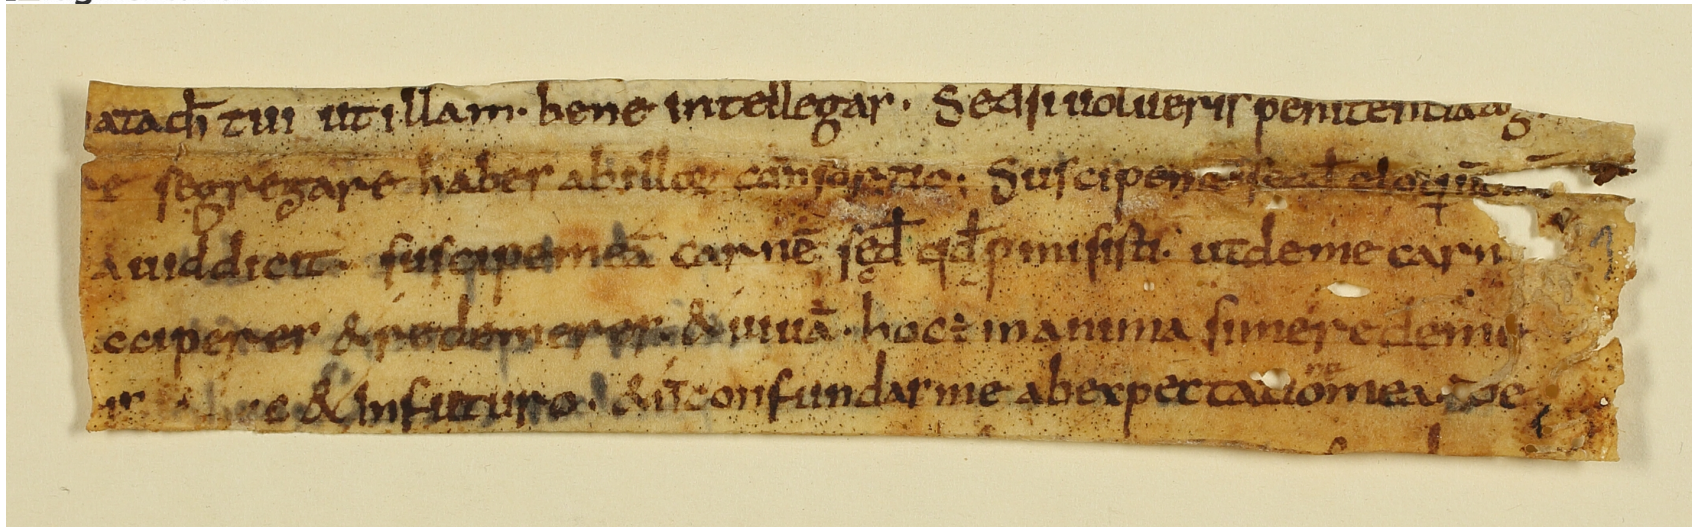 atach̄ tui ut illam· bene intellegar· Sed si uolueris penitentia ag
re segregare habes ab illoꝝ consortio; Suscipe me sec̄d eloquiū
dauid dicit· suscipe meā carnē sec̄d qđ p̱misisti· ut de me carn
acciperes & redemeres· & uiuā· hoc ÷ in anima simer edemis
& in futuro· & n̄ confundas me ab expectatione mea·